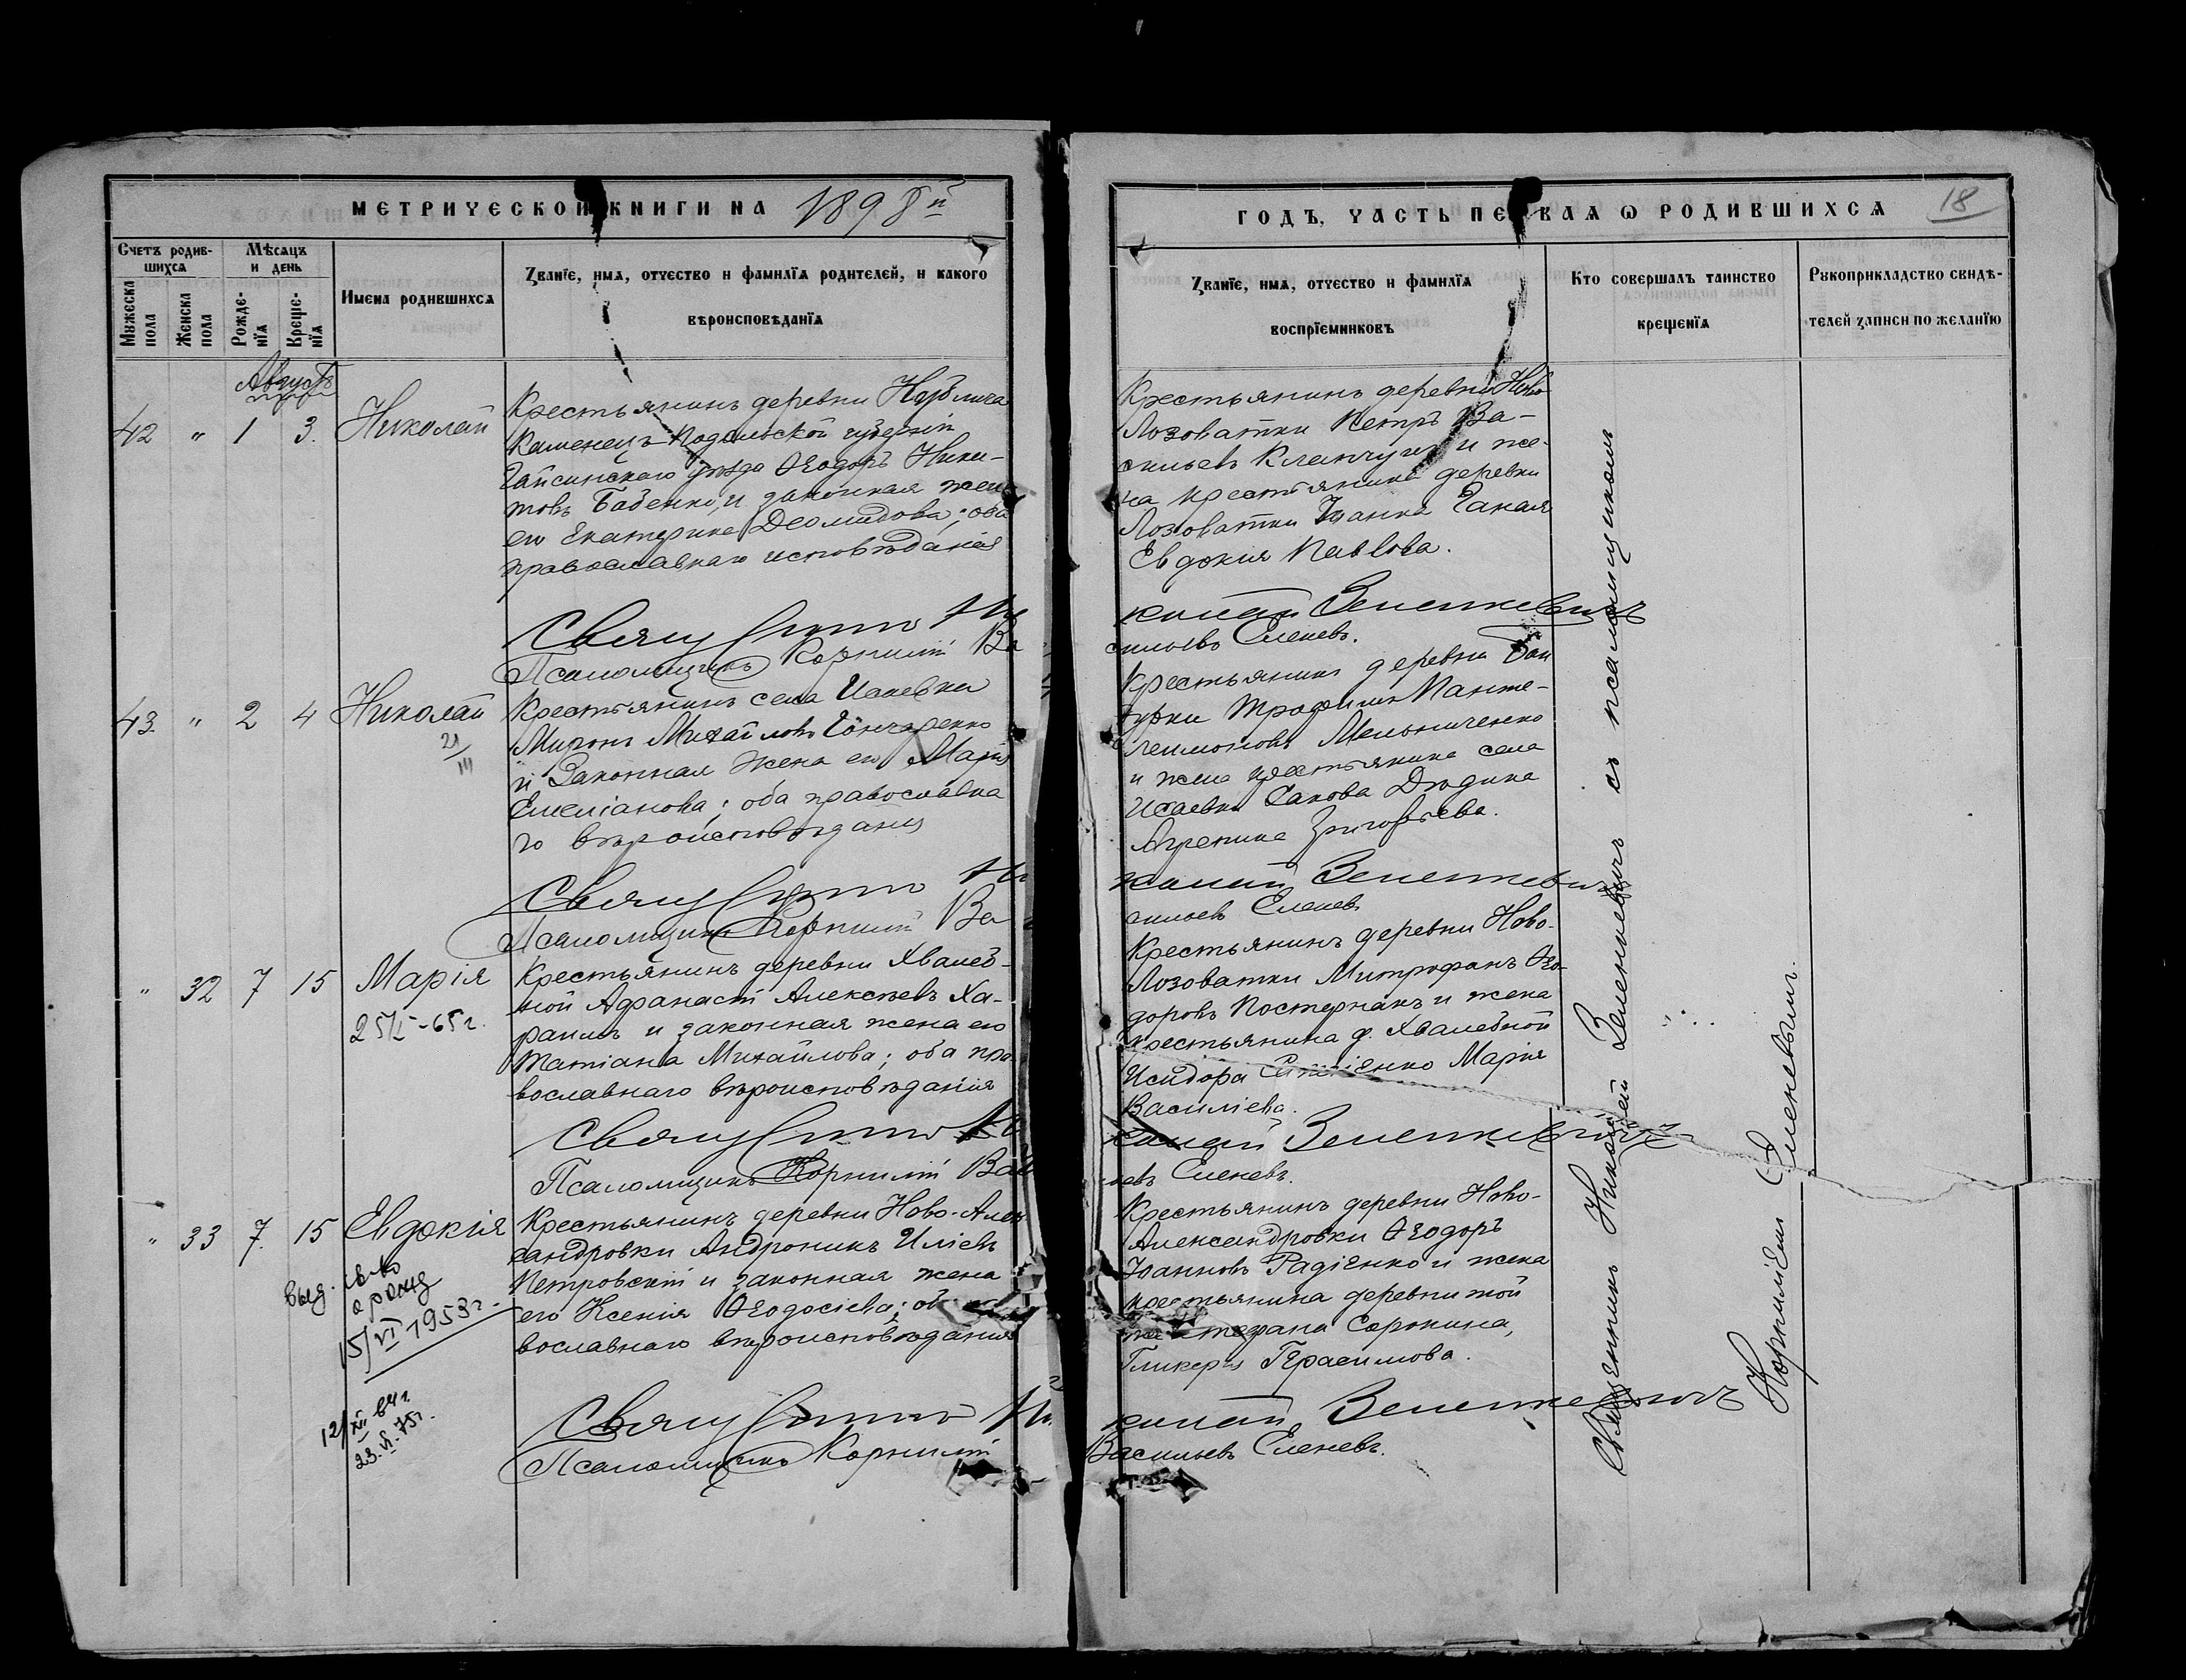 МЕТРИЧЕСКОЙ КНИГИ НА 1898 й
Счетъ родив-
шихся
Мѣсяцъ
и день
Мужеска
пола
Женска
пола
Рожде-
нїя
Креще-
нїя
Имена родившихся
Званїе, имя, отчество и фамилїя родителей, и какого
вѣроисповѣданїя
Августъ
42 " 1 3. Николай
Крестьянинъ деревни
Каменецъ-Подольской губерніи
Гайсинскаго уѣзда Ѳеодоръ Ники-
товъ Бабенко, и законная жена
его Екатерина Деомидова; оба
православнаго исповѣданія
Священникъ Ни
Псаломщикъ Корнилій Ва
43. " 2 4 Николай
21/III
Крестьянинъ села Исаевки
Миронъ Михайловъ Гончаренко
и Законная жена его Марія
Емеліанова; оба православна
го вѣроисповѣданія
Священникъ Ни
Псаломщикъ Корнилій Ва
" 32 7 15 Марія
25/I-65 г.
Крестьянинъ деревни Хвалеб-
ной Афанасій Алексѣевъ Ха-
и законная жена его
Татіана Михайлова; оба пра
вославнаго вѣроисповѣданія
Священникъ Ни
Псаломщикъ Корнилій Ва
" 33 7. 15 Евдокія
выд. св-во
о рожд
15/VI 1953 г.
12/XII 64 г.
23.VI-75 г.
Крестьянинъ деревни Ново-Алек
сандровки Андроникъ Иліевъ
Петровскій и законная жена
его Ксенія Ѳеодосіева; об
вославнаго вѣроисповѣданія
Священникъ Ни
Псаломщикъ Корнилій
ГОДЪ, ЧАСТЬ ПЕРВАЯ Ѡ РОДИВШИХСЯ
18
Званїе, имя, отчество и фамилїя
воспрїемниковъ
Кто совершалъ таинство
крещенїя
Рукоприкладство свидѣ-
телей записи по желанїю
Крестьянинъ деревни Ново
Лозоватки Петръ Ва-
сильевъ и же-
на крестьянина деревни
Лозоватки Іоанна
Евдокія Павлова.
колай Зеленкевичъ
сильевъ Еленевъ.
Крестьянинъ деревни Бай
турки Трофимъ Панте-
леимоновъ Мельниченко
и жена крестьянина села
Исаевки Іакова Дюдина
Агрепина Григорьева.
колай Зеленкевичъ
сильевъ Еленевъ
Крестьянинъ деревни Ново-
Лозоватки Митрофанъ Ѳео-
доровъ Постернакъ и жена
крестьянина д. Хвалебной
Исидора Марія
Василіева.
колай Зеленкевичъ
евъ Еленевъ.
Крестьянинъ деревни Ново-
Александровки Ѳеодоръ
Іоанновъ Радіенко и жена
крестьянина деревни той
же Стефана Сорокина,
Гликерія Герасимова.
колай Зеленкевичъ
Васильевъ Еленевъ.
Священникъ Николай Зеленкевичъ съ псаломщикомъ
Корниліемъ Еленевымъ.